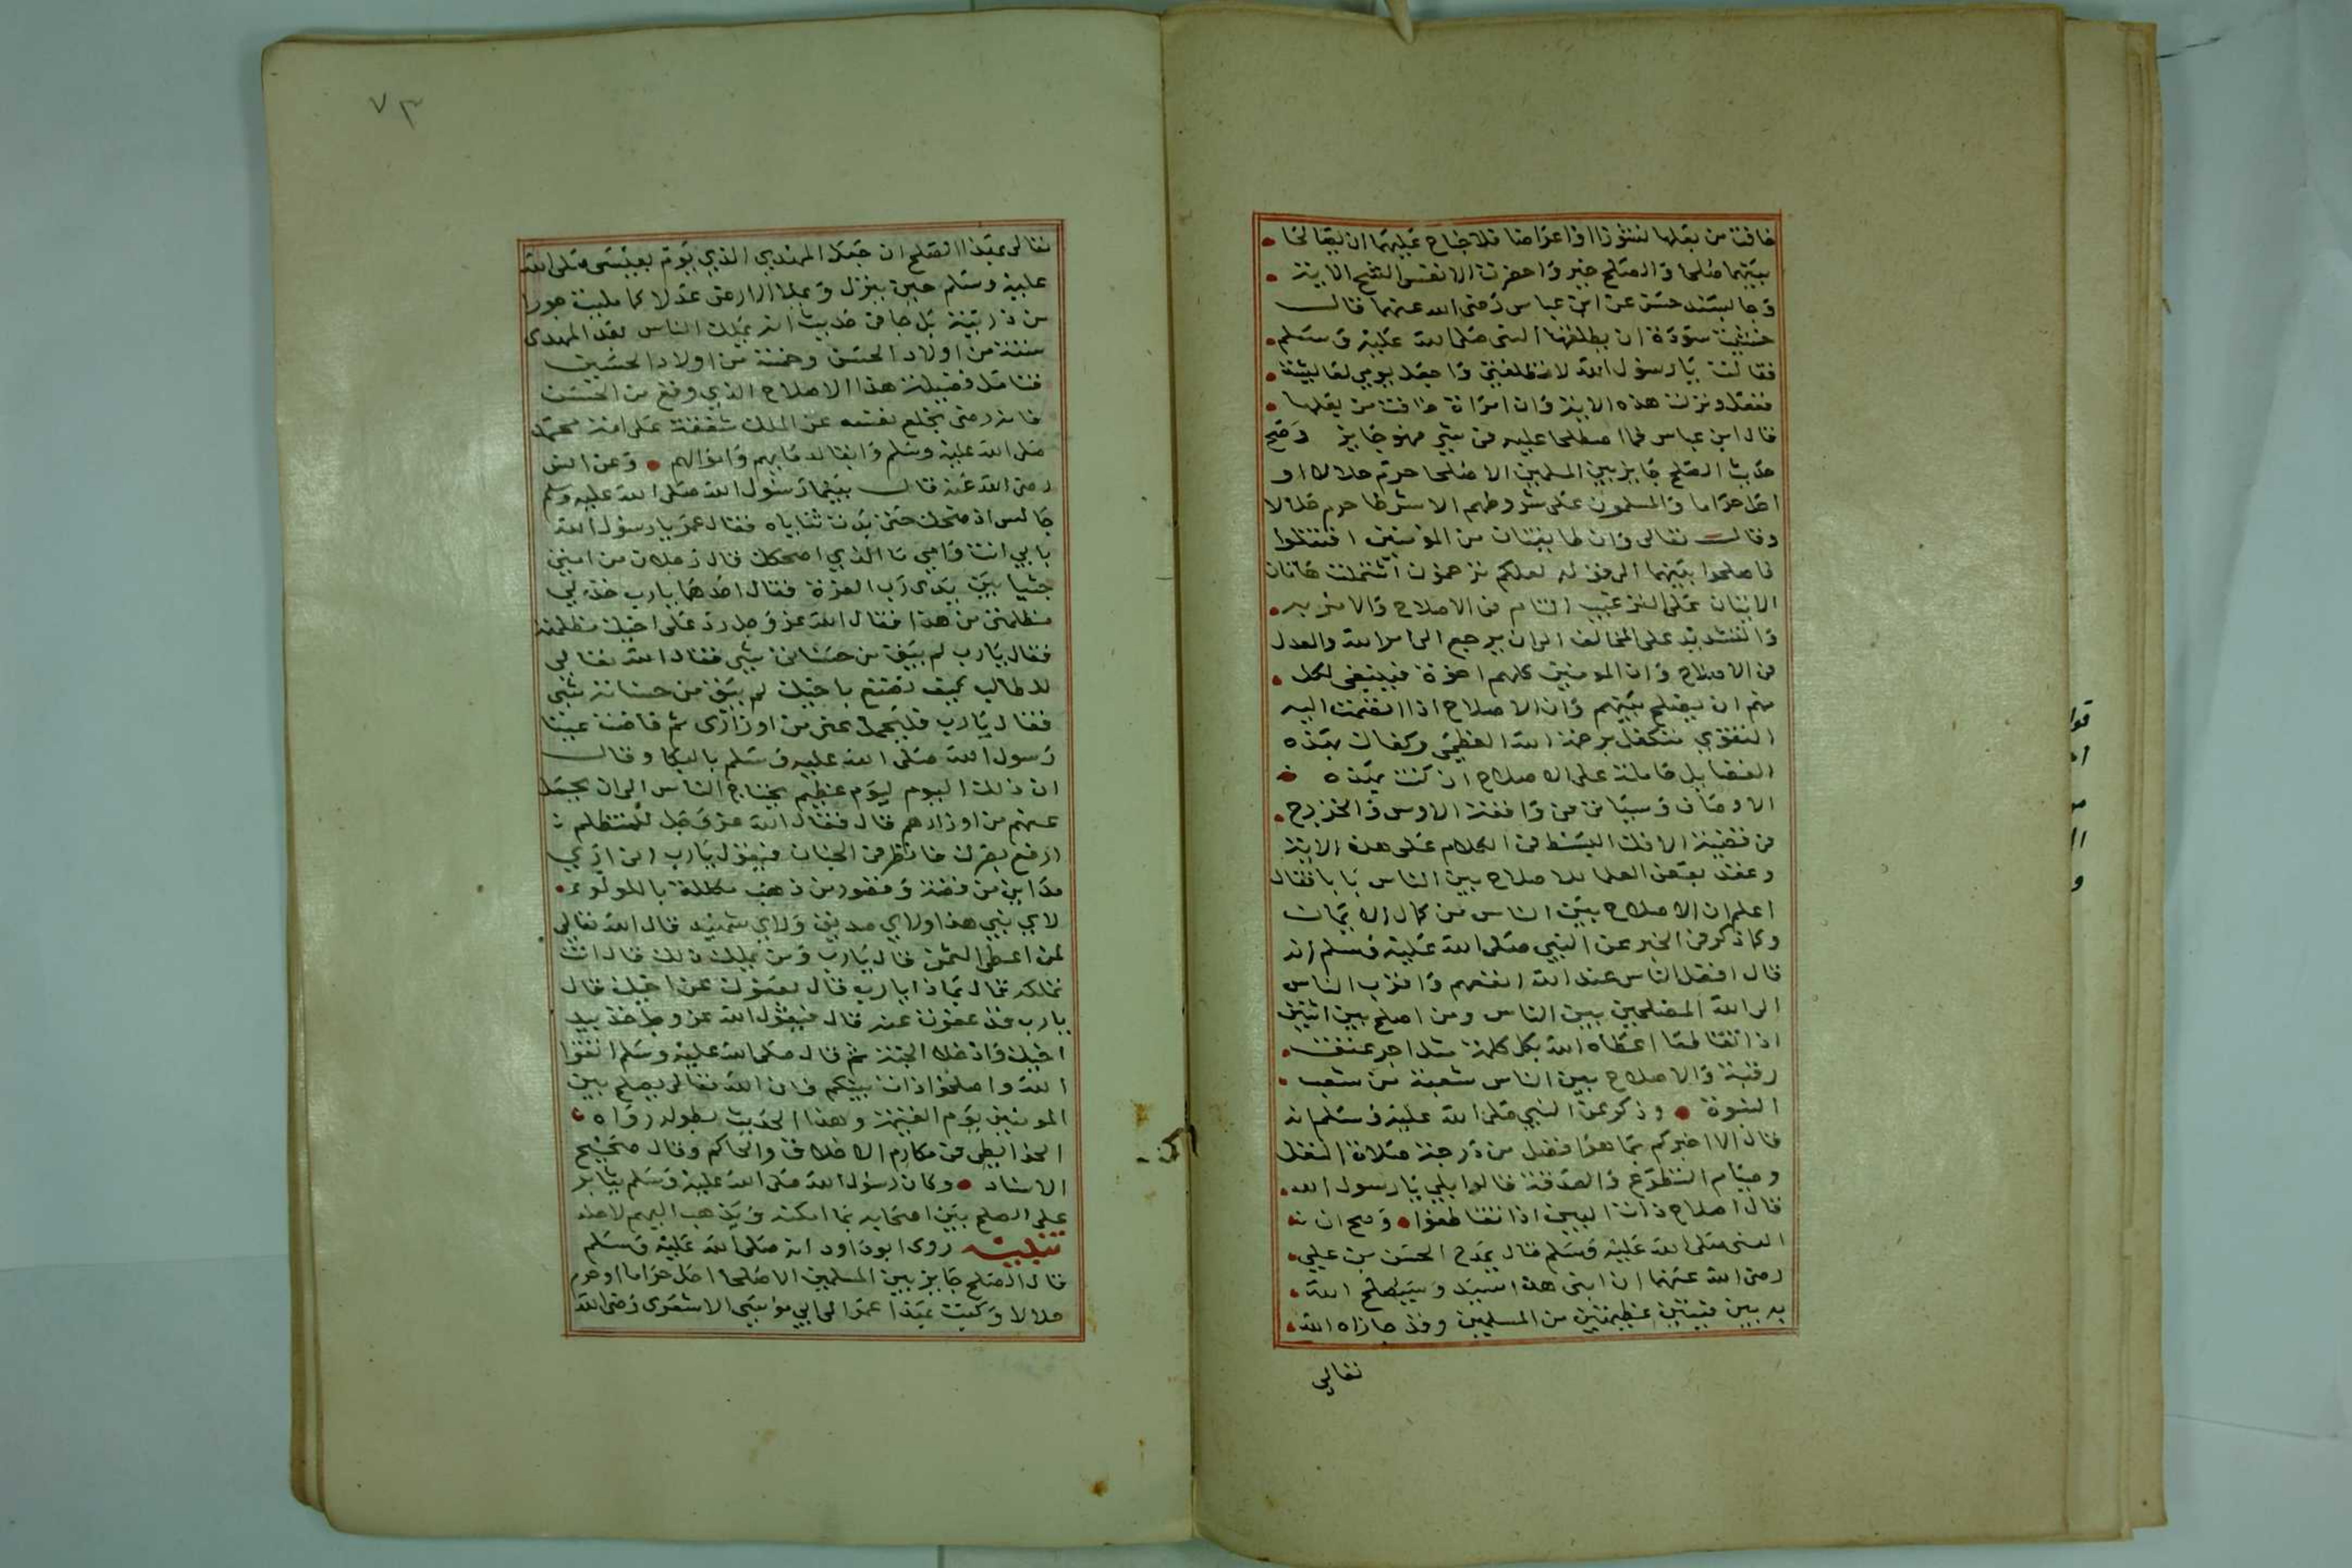 خافت من بعلها نشوزا او اعراضا فلا جناح عليهما ان يصالحا
بينهما صلحا والصلح خير واحضرت الانفس الشح الاية
وجا بسند حسن عن ابن عباس رضى الله عنهما قال
خشيت سودة ان يطلقها النبى صلى الله عليه وسلم
فقالت يا رسول الله لا تطلقنى واجعل يومي لعايشة
ففعل ونزلت هذه الاية وان امراة خافت من بعلها
قال ابن عباس فما اصطلحا عليه من شي فهو جايز وصح
حديث الصلح جايز بين المسلمين الا صلحا حرم حلالا او
احل حراما والمسلمون على شروطهم الا شرطا حرم حلالا
وقال تعالى وان طايفتان من المومنين اقتتلوا
فاصلحوا بينهما الى قوله لعلكم ترحمون اشتملت هاتان
الايتان على الترغيب التام في الاصلاح والامر به
والتشديد على المخالف الى ان يرجع الى امر الله والعدل
في الاصلاح وان المومنين كلهم اخوة فينبغى لكل
منهم ان يصلح بينهم وان الاصلاح اذا انضمت اليه
التقوي تتكفل برحمة الله العظمى وكفاك بهذه
الفضايل حاملة على الاصلاح ان كنت بهذه
الاوصاف وسياتى في واقعة الاوس والخزرج
في قضية الافك البسط في الكلام على هذه الاية
وعقد بعض العلما للاصلاح بين الناس بابا فقال
اعلم ان الاصلاح بين الناس من كمال الايمان
وكما ذكر في الخبر عن النبي صلى الله عليه وسلم انه
قال افضل الناس عند الله انفعهم واقرب الناس
الى الله المصلحين بين الناس ومن اصلح بين اثنين
اذا تقاطعا اعطاه الله بكل كلمة مثل اجر عتق
رقبة والاصلاح بين الناس شعبة من شعب
النبوة وذكر عن النبي صلى الله عليه وسلم انه
قال الا اخبركم بما هو افضل من درجة صلاة النفل
وصيام التطوع والصدقة قالوا بلي يا رسول الله
قال اصلاح ذات البين اذا تقاطعوا وصح ان
النبى صلى الله عليه وسلم قال يمدح الحسن بن علي
رضى الله عنهما ان ابنى هذا سيد وسيصلح الله
به بين فيتين عظيمتين من المسلمين وقد جازاه الله
تعالي
٧٣
تعالى بهذا الصلح ان جعل المهدي الذي يوم بعيسى صلى الله
عليه وسلم حين ينزل ويملا الارض عدلا كما مليت جورا
من ذريته بل جا في حديث انه يملك الناس بعد المهدى
ستة من اولاد الحسن وخمسة من اولاد الحسين
فتامل فضيلة هذا الاصلاح الذي وقع من الحسن
فانه رضى بخلع نفسه عن الملك شفقة على امة محمد
صلى الله عليه وسلم وابقا لدمايهم واموالهم وعن انس
رضى الله عنه قال بينما رسول الله صلى الله عليه وسلم
جالس اذ ضحك حتى بدت ثناياه فقال عمر يا رسول الله
بابي انت وامي ما الذي اضحكك قال رجلان من امتى
جثيا بين يدى رب العزة فقال احدهما يا رب خذ لي
مظلمتى من هذا فقال الله عز وجل رد على اخيك مظلمته
فقال يا رب لم يبق من حسناتى شي فقال الله تعالي
للطالب كيف تصنع باخيك لم يبق من حسناته شي
فقال يا رب فليحمل عنى من اوزارى ثم فاضت عينا
رسول الله صلى الله عليه وسلم بالبكا وقال
ان ذلك اليوم ليوم عظيم يحتاج الناس الى ان يحمل
عنهم من اوزارهم قال فقال الله عز وجل للمتظلم
ارفع بصرك فانظر في الجنان فيقول يا رب ارى
مداين من فضة وقصور من ذهب مكللة باللولو
لاي نبي هذا ولاي صديق ولاي شهيد قال الله تعالي
لمن اعطى الثمن قال يا رب ومن يملك ذلك قال انت
تملكه قال بماذا يا رب قال بعفوك عن اخيك قال
يا رب قد عفوت عنه قال فيقول الله عز وجل خذ بيد
اخيك وادخله الجنة ثم قال صلى الله عليه وسلم اتقوا
الله واصلحوا ذات بينكم فان الله تعالى يصلح بين
المومنين يوم القيمة وهذا الحديث بطوله رواه
الخرايطى في مكارم الاخلاق والحاكم وقال صحيح
الاسناد وكان رسول الله صلى الله عليه وسلم يثابر
على الصلح بين اصحابه ما امكنه ويذهب اليهم لاجله
تنبيه روى ابو داود انه صلى الله عليه وسلم
قال الصلح جايز بين المسلمين الا صلحا احل حراما او حرم
حلالا وكتب بهذا عمر الى ابي موسى الاشعرى رضى الله